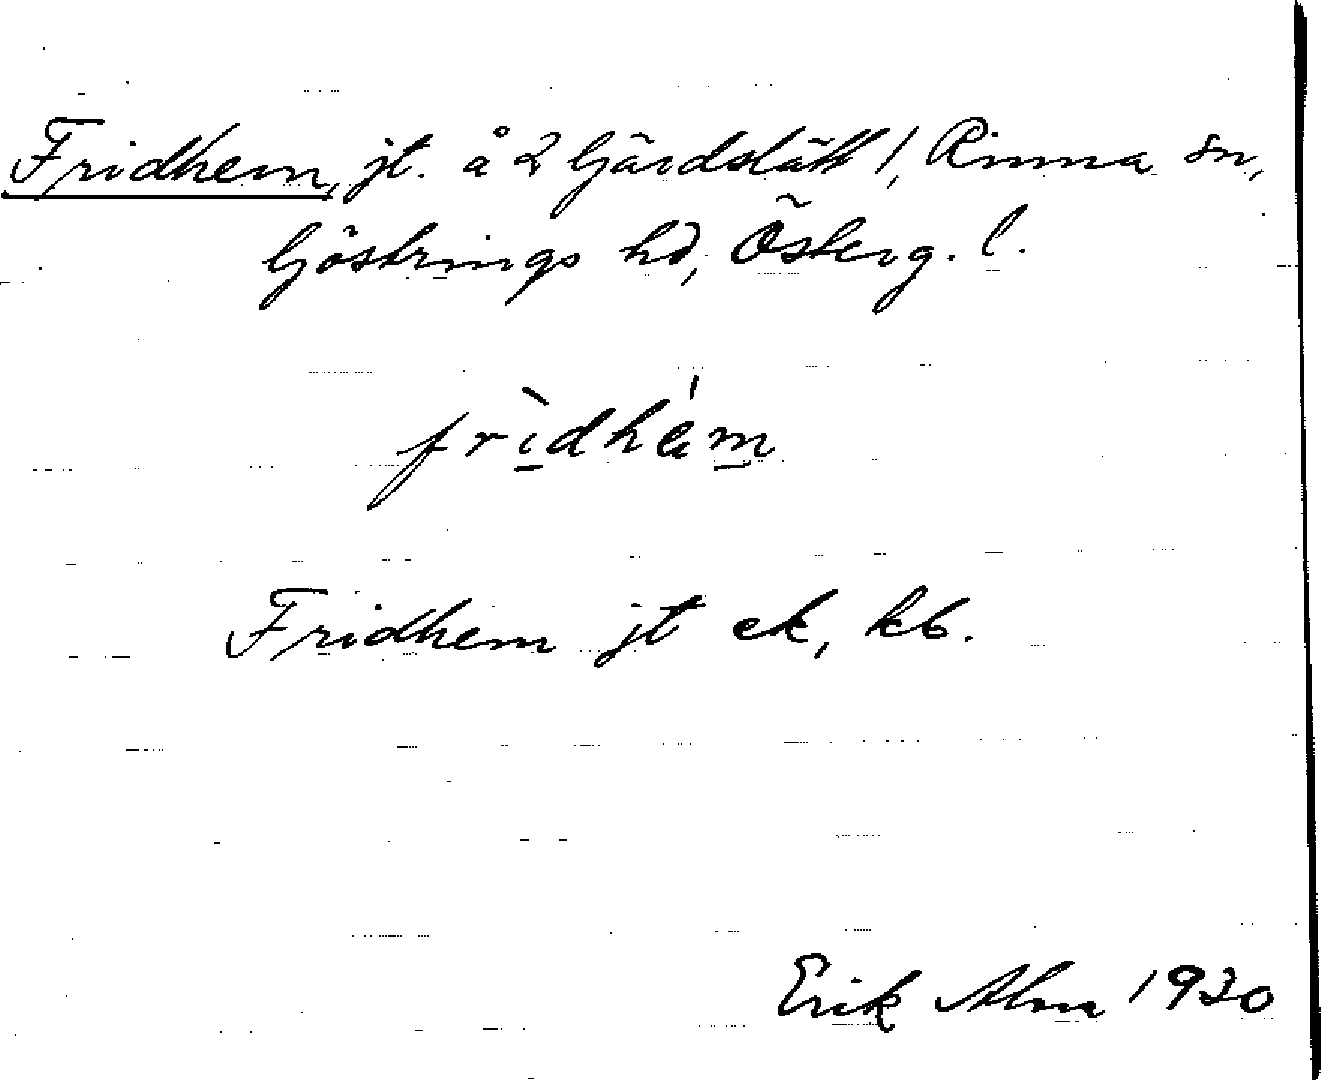 Fridhem, jt. å 2 Gärdslätt 1, Rinna sn,
Göstrings hd, Österg. l.
frìdhém
Fridhem jt ek, kb.
Erik Alm 1930